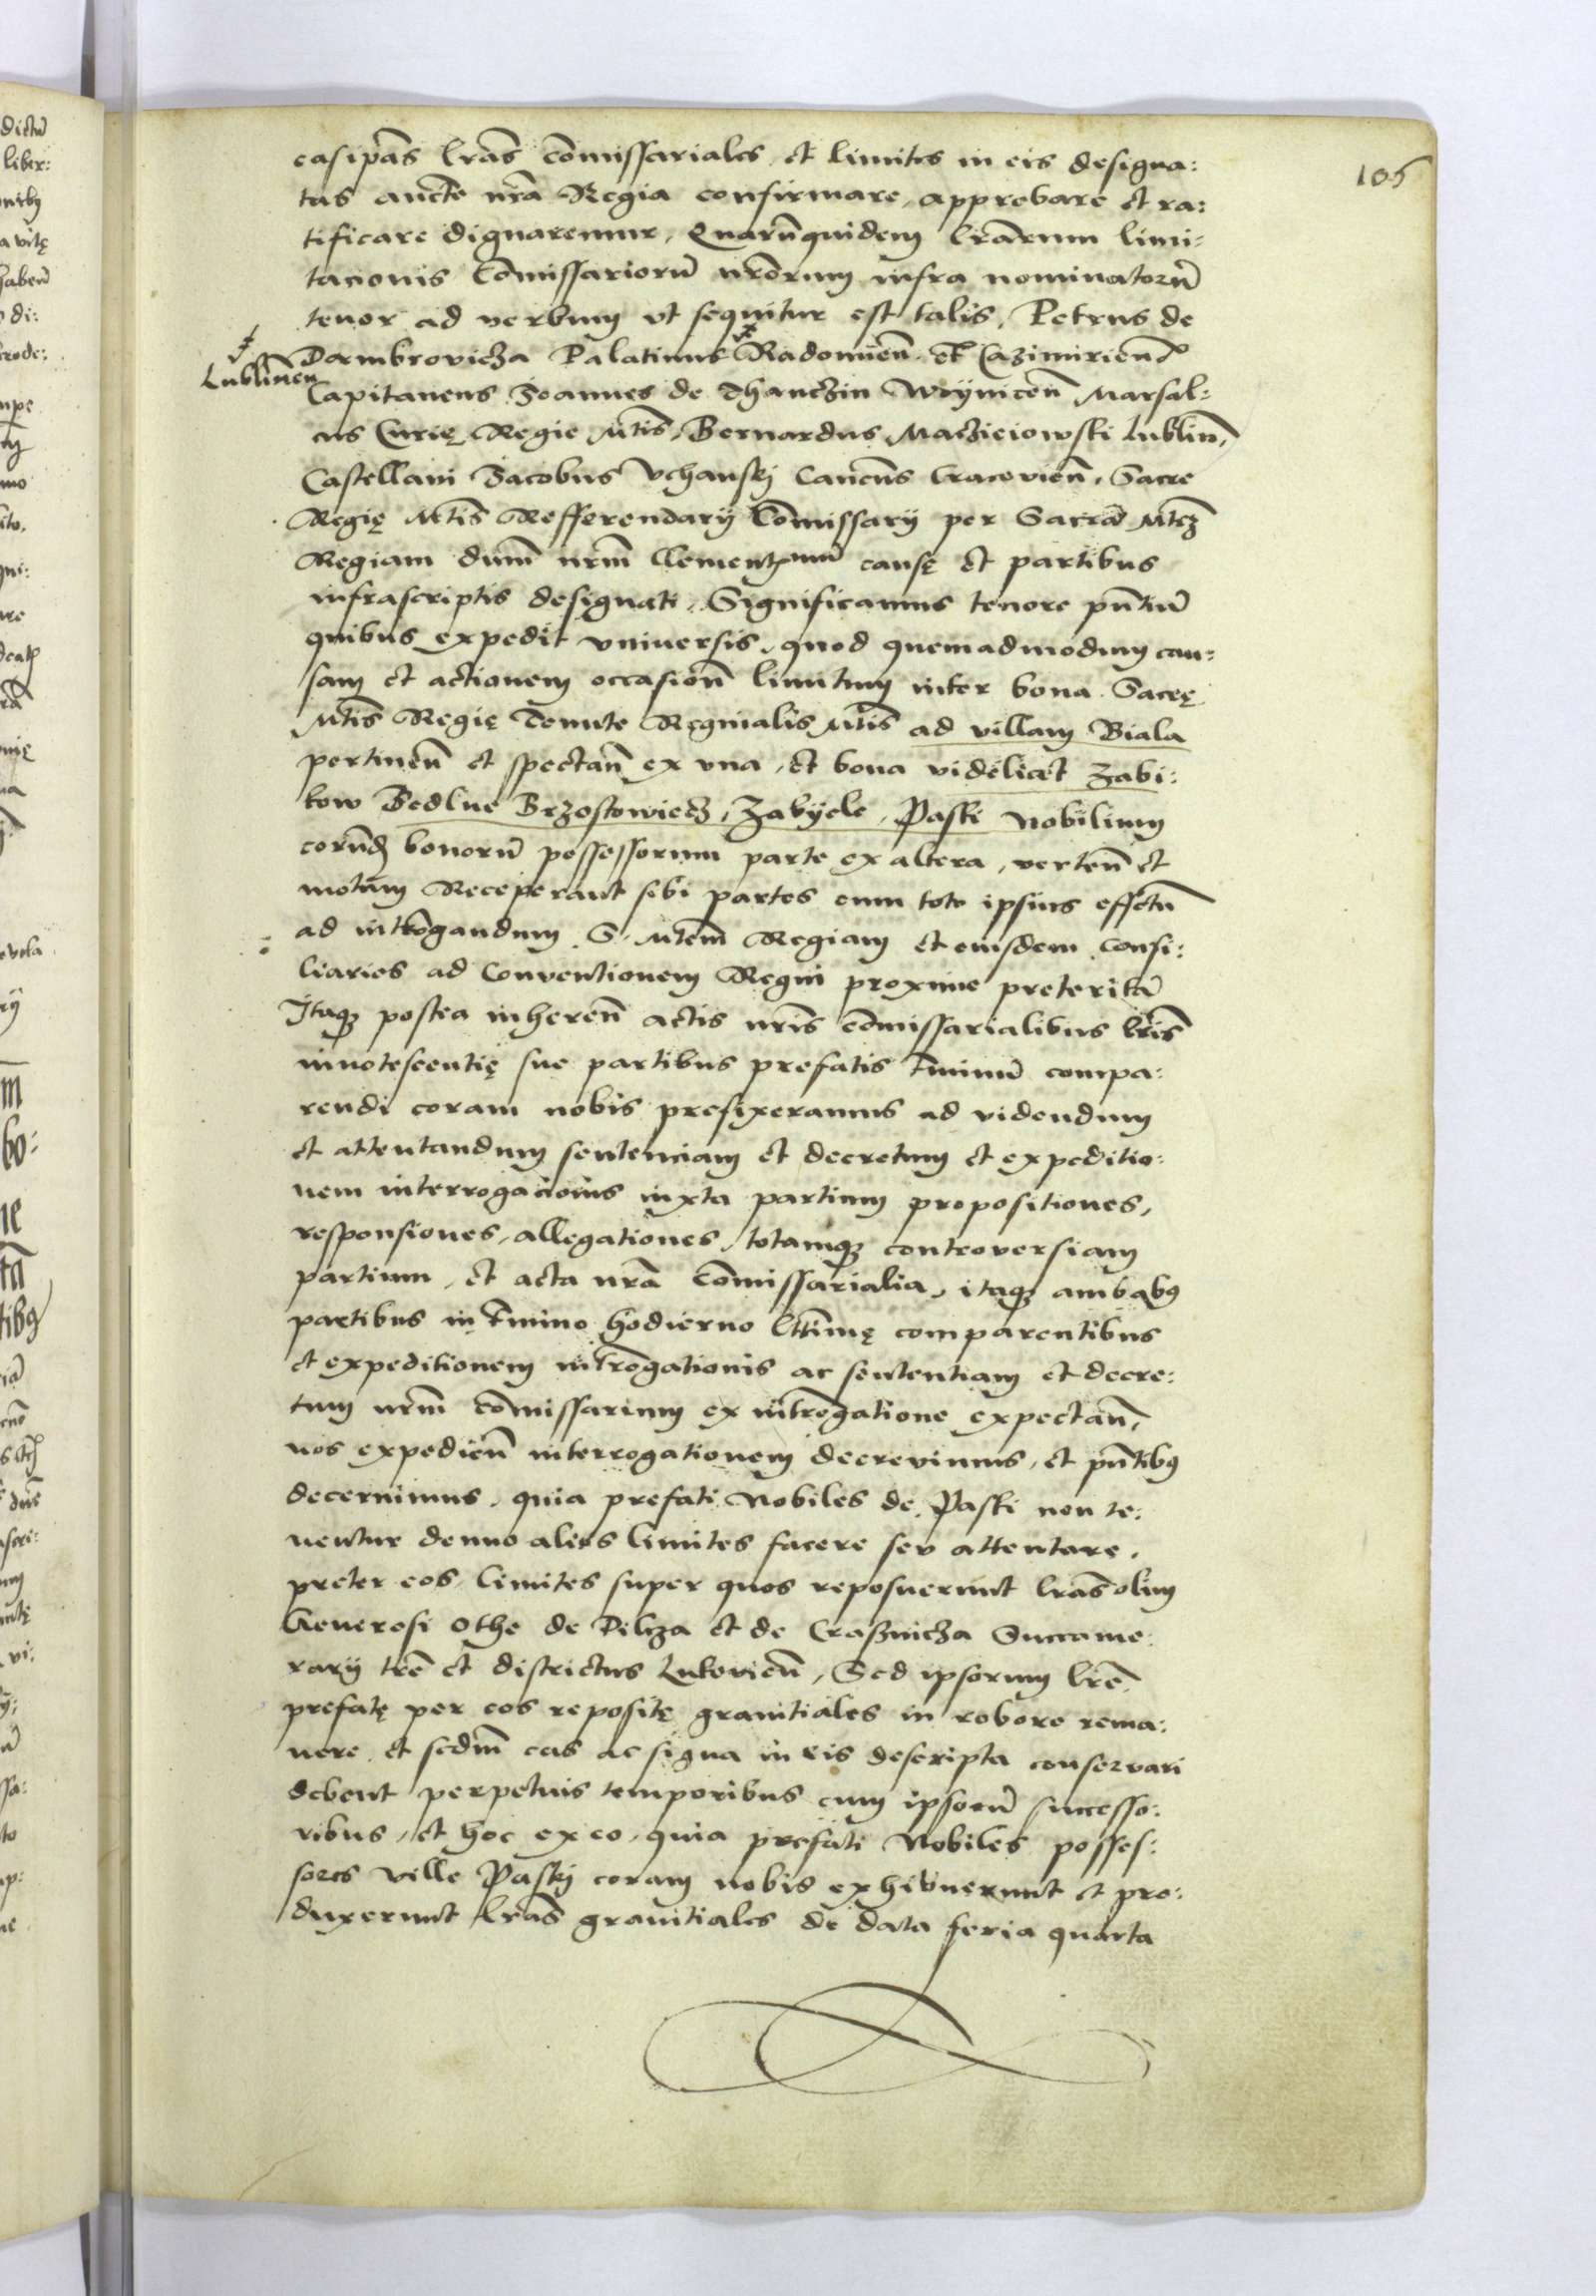 105
easipãs lrãs com̃issariales et limites in eis designa:
tas aucte nr̃a Regia confirmare, approbare et ra:
tificare dignaremur, Quarũquidem lrãrum limi:
tacionis Com̃issariorũ nr̃orum infra nominatorũ
tenor ad verbum vt sequitur est talis, Petrus de
Dambrovicza Palatinus Radomień et Cazimirień
Lublineñ
Capitaneus Joannes de Thanczin Woyniceń Marsal:
cus Curię Regie Mtis, Bernardus Maczieiowski Lublin,
Castellani Jacobus Vchanskj Canoñs Cracovień, Sacre
Regię Mtis Refferendarij Com̃issarij per Sacrã Mtez
Regiam dnũm nrm̃ Clementmũ causę et partibus
infrascriptis designati, Significamus tenore pñtiũ
quibus expedit vniuersis, quod quemadmodum cau:
sam et actionem occasioñ limitum inter bona Sacrę
Mtis Regię Tenute Reginalis Mtis ad villam Biala
pertineñ et spectañ ex vna, et bona videlicet Zabi:
kow Bedlne Brzostowiecz, Zabyele, Paski Nobilium
eorund bonorũ possessorum parte ex altera, verteñ et
motam Receperant sibi partes cum toto ipsius effectu
ad intrõgandum S. Mtem Regiam et eiusdem consi:
liarios ad Conventionem Regni proxime preteritã
Itaq postea inhereñ actis nr̃is com̃issarialibus lr̃is
innotescentię sue partibus prefatis tm̃inũ compa:
rendi coram nobis prefixeramus ad videndum
et attentandum sentenciam et decretum et expeditio:
nem interrogacionis iuxta partium propositiones,
responsiones, allegationes, totamq controversiam
partium, et acta nr̃a com̃issarialia, itaq ambabus
partibus in tm̃ino hodierno lttimę comparentibus
et expeditionem intrõgationis ac sententiam et decre:
tum nrm̃ com̃issarium ex intrõgatione expectañ,
nos expedień interrogationem decrevimus, et pñtibus
decernimus, quia prefati Nobiles de Paski non te:
nentur denuo alios limites facere seu attentare,
preter eos limites super quos reposuerunt lrãs olim
Generosi Othe de Pilcza et de Crasznicza Succame:
rarij trẽ et districtus Lukovień, Sed ipsorum lrẽ
prefatę per eos repositę granitiales in robore rema:
nere et secdm̃ eas ac signa in eis descripta conservari
debent perpetuis temporibus cum ipsorũ successo:
ribus, et hoc ex eo, quia prefati Nobiles posses:
sores ville Paskj coram nobis exhibuerunt et pro:
duxerunt lrãs granitiales de data feria quarta